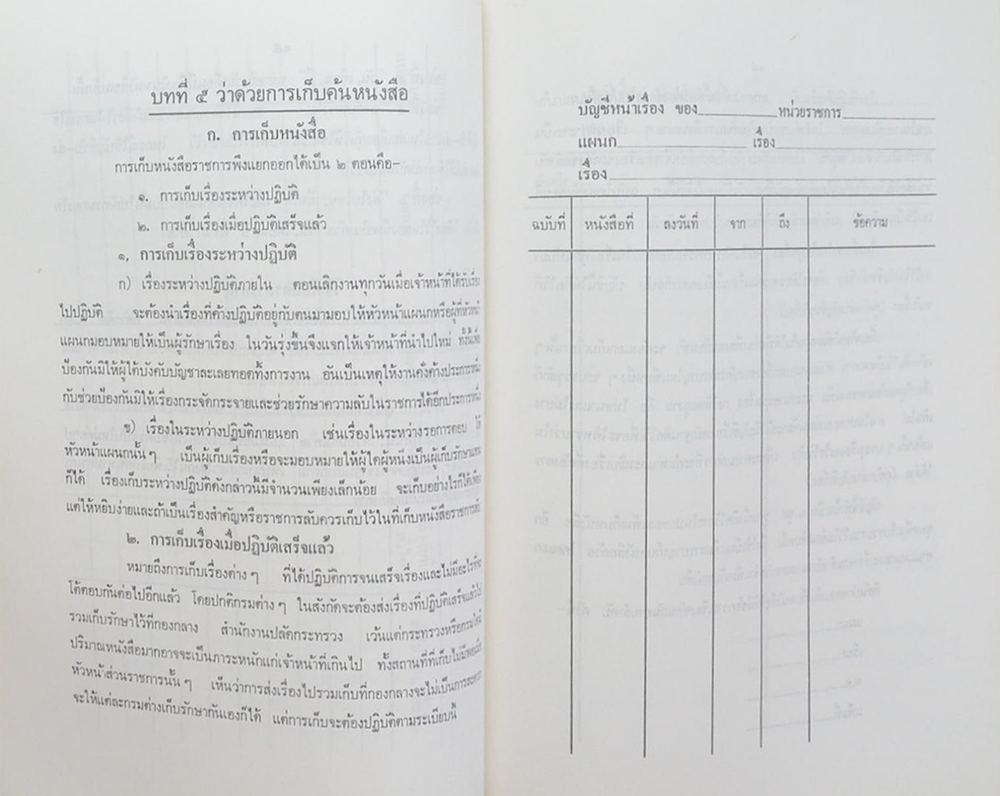 บทที่ ๕ ว่าด้วยการเก็บค้นหนังสือ
ก. การเก็บหนังสือ
การเก็บหนังสือราชการพึงแยกออกได้เป็น ๒ ตอนคือ-
๑. การเก็บเรื่องระหว่างปฏิบัติ
๒. การเก็บเรื่องเมื่อปฏิบัติเสร็จแล้ว
๑. การเก็บเรื่องระหว่างปฏิบัติ
ก) เรื่องระหว่างปฏิบัติภายใน ตอนเลิกงานทุกวันเมื่อเจ้าหน้าที่ได้รับเรื่อง
ไปปฏิบัติ จะต้องนำเรื่องที่ค้างปฏิบัติอยู่กับตนมามอบให้หัวหน้าแผนกหรือผู้ที่หัวหน้า
แผนกมอบหมายให้เป็นผู้รักษาเรื่อง ในวันรุ่งขึ้นจึงแจกให้เจ้าหน้าที่นำไปใหม่ ทั้งนี้เพื่อ
ป้องกันมิให้ผู้ใต้บังคับบัญชาละเลยทอดทิ้งการงาน อันเป็นเหตุให้งานคั่งค้างประการหนึ่ง
กับช่วยป้องกันมิให้เรื่องกระจัดกระจายและช่วยรักษาความลับในราชการได้อีกประการหนึ่ง
ข) เรื่องในระหว่างปฏิบัติภายนอก เช่นเรื่องในระหว่างรอการตอบ ให้
หัวหน้าแผนกนั้น ๆ เป็นผู้เก็บเรื่องหรือจะมอบหมายให้ผู้ใดผู้หนึ่งเป็นผู้เก็บรักษาแทน
ก็ได้ เรื่องเก็บระหว่างปฏิบัติดังกล่าวนี้มีจำนวนเพียงเล็กน้อย จะเก็บอย่างไรก็ได้
แต่ให้หยิบง่ายและถ้าเป็นเรื่องสำคัญหรือราชการลับควรเก็บไว้ในที่เก็บหนังสือราชการลับ
๒. การเก็บเรื่องเมื่อปฏิบัติเสร็จแล้ว
หมายถึงการเก็บเรื่องต่าง ๆ ที่ได้ปฏิบัติการจนเสร็จเรื่องและไม่มีอะไรที่จะ
โต้ตอบกันต่อไปอีกแล้ว โดยปกติกรมต่าง ๆ ในสังกัดจะต้องส่งเรื่องที่ปฏิบัติเสร็จแล้วไป
รวมเก็บรักษาไว้ที่กองกลาง สำนักงานปลัดกระทรวง เว้นแต่กระทรวงหรือกรมใดมี
ปริมาณหนังสือมากอาจจะเป็นภาระหนักแก่เจ้าหน้าที่เกินไป ทั้งสถานที่ที่เก็บไม่มีพอเมื่อ
หัวหน้าส่วนราชการนั้น ๆ เห็นว่าการส่งเรื่องไปรวมเก็บที่กองกลางจะไม่เป็นการสะดวก
จะให้แต่ละกรมต่างเก็บรักษากันเองก็ได้ แต่การเก็บจะต้องปฏิบัติตามระเบียบนี้
บัญชีหน้าเรื่อง ของ หน่วยราชการ
แผนก เรื่อง
เรื่อง
ฉบับที่ หนังสือที่ ลงวันที่ จาก ถึง ข้อความ